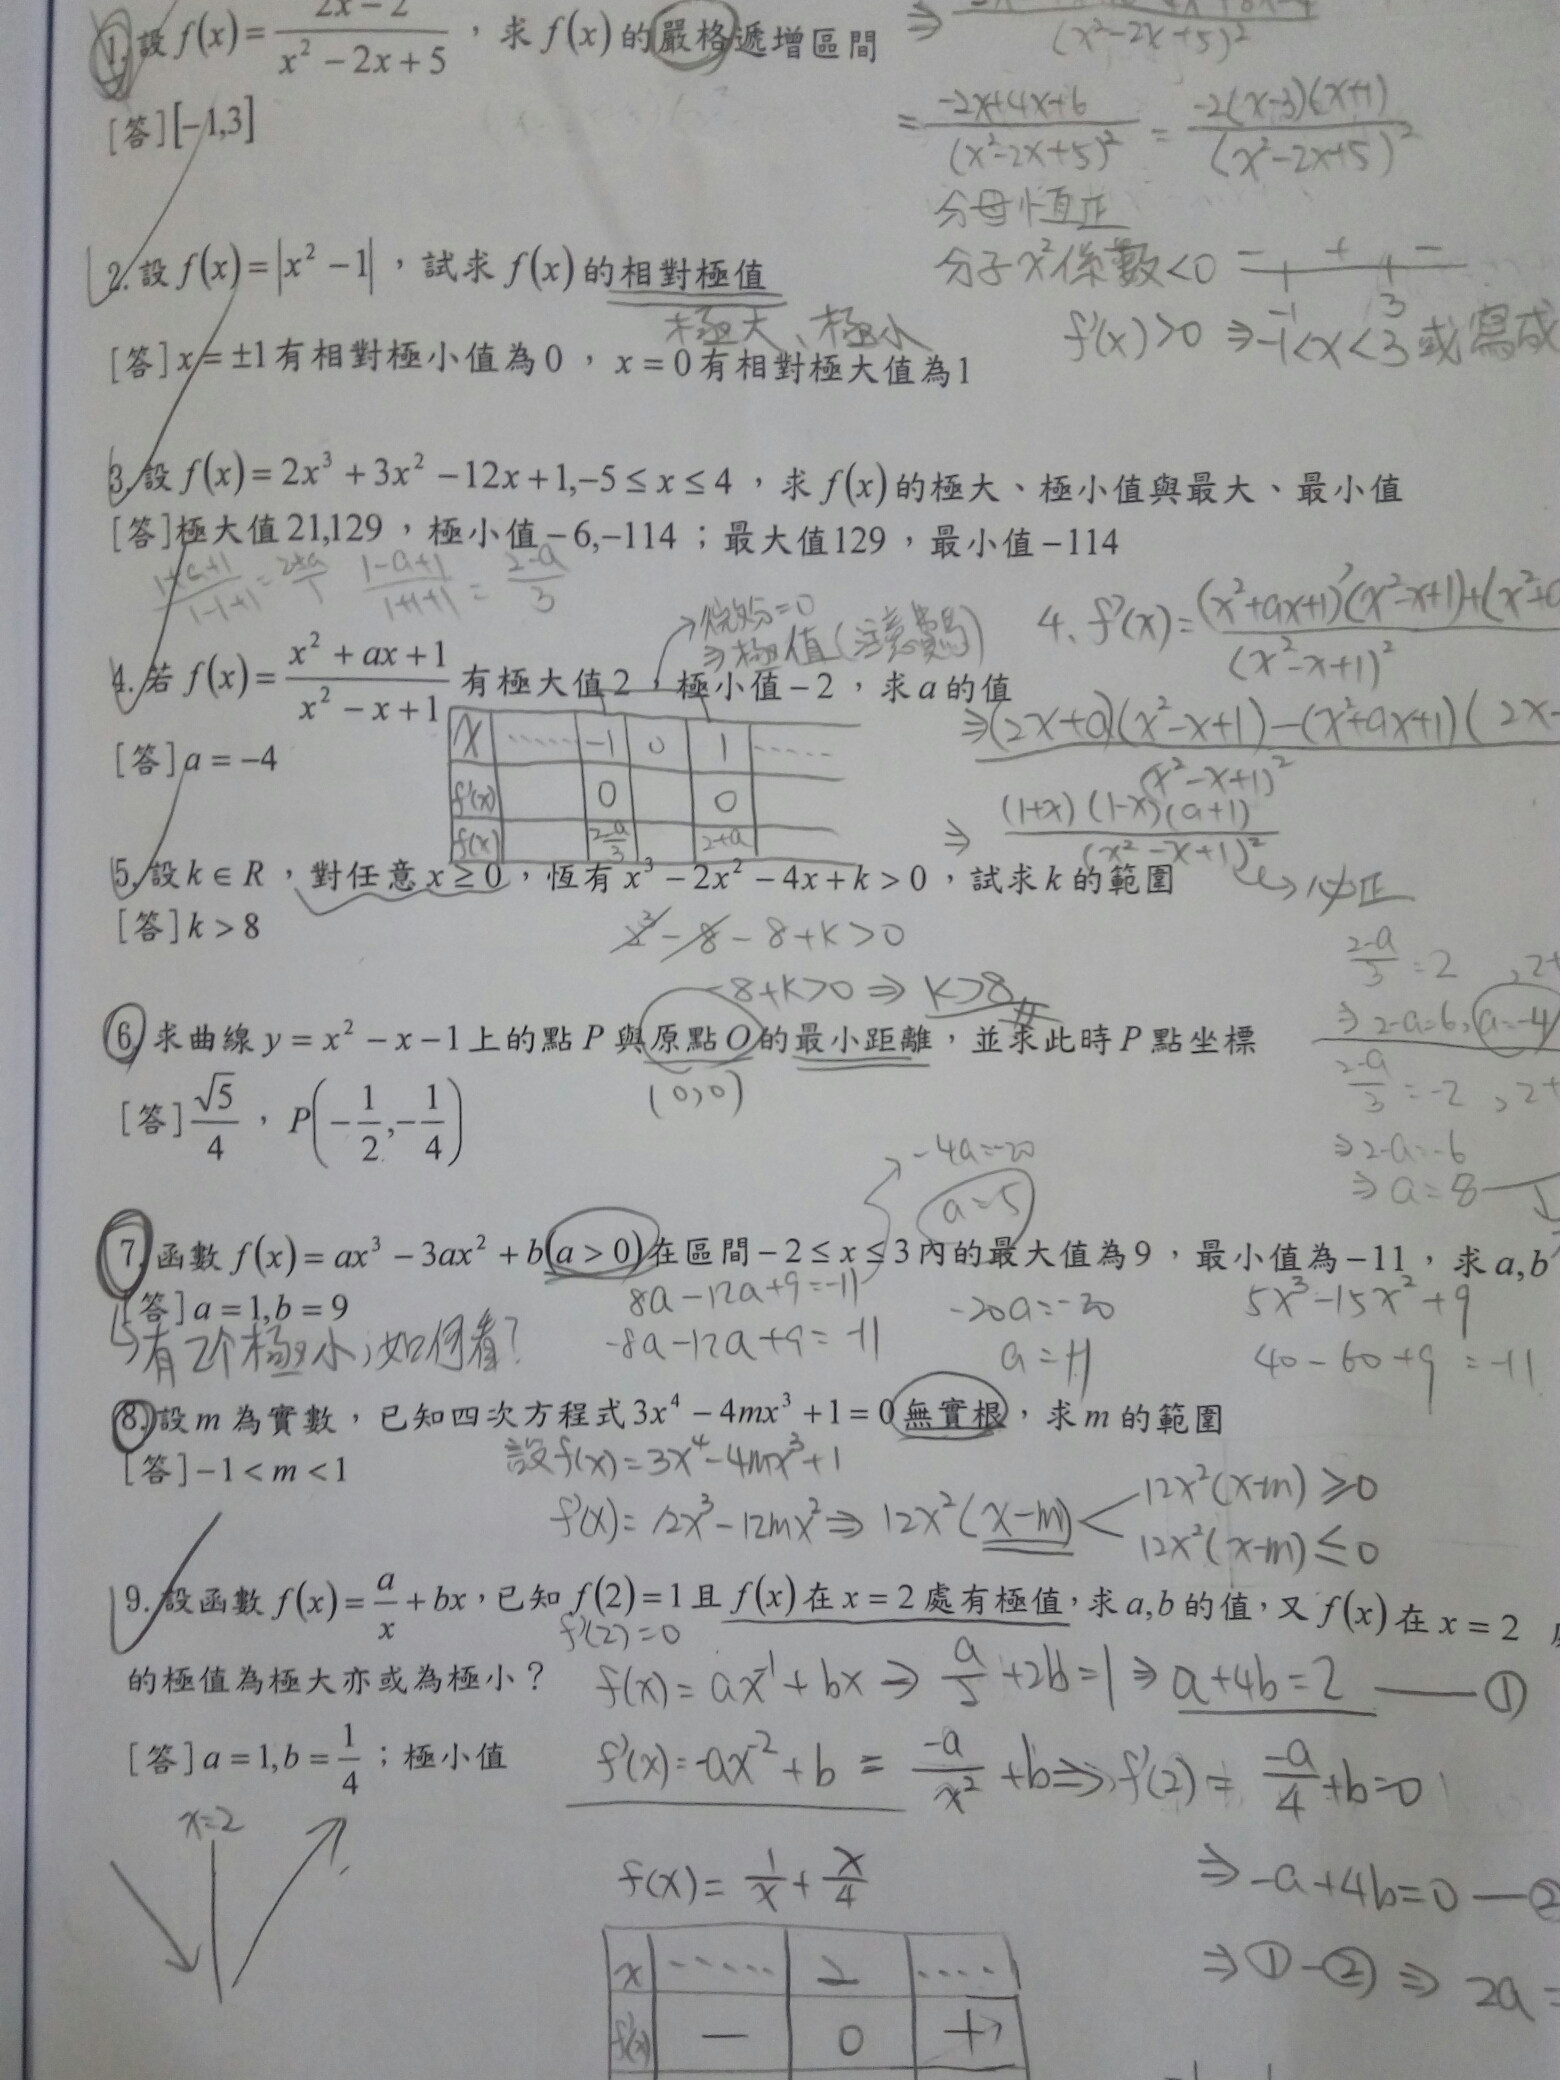 1. 設 f(x) = (2x − 2)/(x² − 2x + 5) ，求 f(x) 的嚴格遞增區間
[答][−1,3]
= (-2x+4x+6)/(x²-2x+5)² = (-2(x-3)(x+1))/(x²-2x+5)²
分母恆正
分子x²係數<0 − + −
-1 3
f'(x)>0 ⇒ -1<x<3 或寫成
2. 設 f(x) = |x² − 1| ，試求 f(x) 的相對極值
極大、極小
[答] x = ±1 有相對極小值為 0 ，x = 0 有相對極大值為 1
3. 設 f(x) = 2x³ + 3x² − 12x + 1, −5 ≤ x ≤ 4 ，求 f(x) 的極大、極小值與最大、最小值
[答] 極大值 21,129 ，極小值 − 6,−114 ；最大值 129 ，最小值 −114
(1+a+1)/(1-1+1) = (2+a)/1 (1-a+1)/(1+1+1) = (2-a)/3
⇒極值
4. 若 f(x) = (x² + ax + 1)/(x² − x + 1) 有極大值 2 ，極小值 − 2 ，求 a 的值
[答] a = −4
x ...... -1 0 1 ......
f'(x) 0 0
f(x) (2-a)/3 2+a
4、f'(x) = ((x²+ax+1)'(x²-x+1)+(x²+a
(x²-x+1)²
⇒ (2x+a)(x²-x+1)-(x²+ax+1)(2x-
(x²-x+1)²
⇒ ((1+x)(1-x)(a+1))/(x²-x+1)²
→ 必正
5. 設 k ∈ R ，對任意 x ≥ 0 ，恆有 x³ − 2x² − 4x + k > 0 ，試求 k 的範圍
[答] k > 8
- 8 - 8 + k > 0
-8+k>0 ⇒ k>8
(2-a)/3 = 2 , 2+
⇒ 2-a=6, a=-4
(2-a)/3 = -2 , 2+
⇒ 2-a=-6
⇒ a=8
6. 求曲線 y = x² − x − 1 上的點 P 與原點 O 的最小距離，並求此時 P 點坐標
(0,0)
[答] √5/4 ，P(−1/2, −1/4)
-4a=-20
a=5
7. 函數 f(x) = ax³ − 3ax² + b(a > 0) 在區間 − 2 ≤ x ≤ 3 內的最大值為 9 ，最小值為 −11 ，求 a,b
[答] a = 1, b = 9
8a-12a+9=-11
-8a-12a+9=-11
-20a=-20
a=+1
5x³-15x²+9
40-60+9=-11
有2个極小，如何看?
8. 設 m 為實數，已知四次方程式 3x⁴ − 4mx³ + 1 = 0 無實根，求 m 的範圍
[答] −1 < m < 1
設f(x)=3x⁴-4mx³+1
f'(x)=12x³-12mx² ⇒ 12x²(x-m)
12x²(x-m)≥0
12x²(x-m)≤0
9. 設函數 f(x) = a/x + bx ，已知 f(2) = 1 且 f(x) 在 x = 2 處有極值，求 a,b 的值，又 f(x) 在 x = 2
f'(2)=0
的極值為極大亦或為極小？
[答] a = 1, b = 1/4 ；極小值
f(x)=ax⁻¹+bx ⇒ a/2+2b=1 ⇒ a+4b=2 —①
f'(x)=-ax⁻²+b = -a/x²+b ⇒ f'(2) = -a/4+b=0
⇒ -a+4b=0 —②
⇒ ①-② ⇒ 2a=
x=2
f(x)= 1/x + x/4
x ...... 2 ....
f'(x) − 0 +